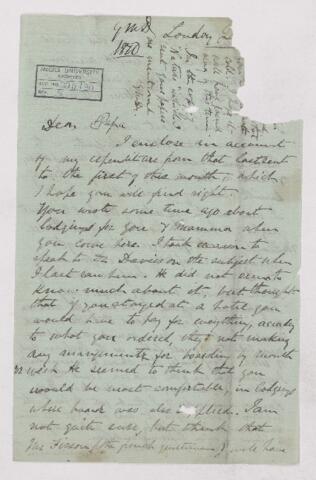 GMD
1870
London
In the copy of
Nature which I
sent your papers
are mentioned
GMD.
McGILL UNIVERSITY
ARCHIVES
Dear Papa
I enclose an account
of my expenditure from that last sent
to the first of this month, which
I hope you will find right.
You wrote some time ago about
lodgings for you & Mamma when
you come here. I took occasion to
speak to Mr Davies on the subject when
I last saw him. He did not
know much about it, but thought
that if you stayed at a hotel you
would have to pay for everything, according
to what you ordered, they not making
any arrangements for boarding by month
or week. He seemed to think that you
would be most comfortable in lodgings
where board was also supplied. I am
not quite sure, but think that
Mr